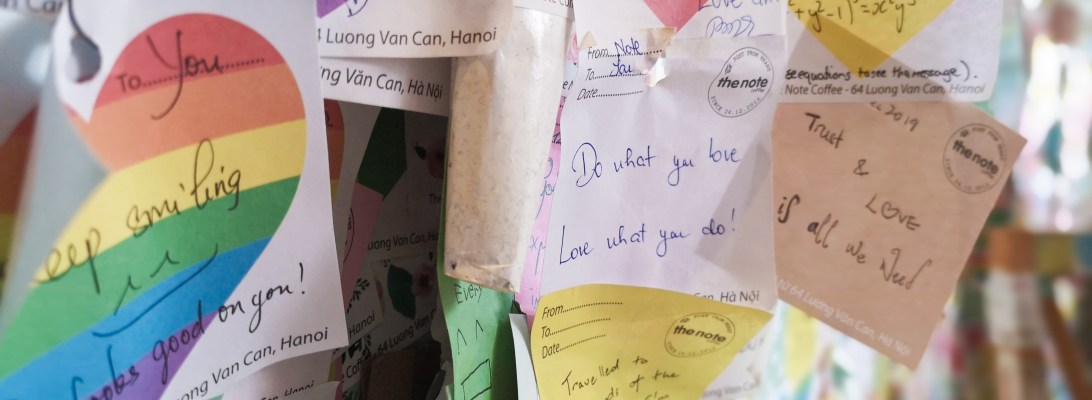 To......You..........
eep smiling
looks good on you!
ong Van Can, Hanoi
4 Luong Van Can, Hanoi
ng Văn Can, Hà Nội
uong Van Can, Ha
64 Luong Van
Every
^ ^
From...Note
To......You
Date
the note
coffee
Do what you love
Love what you do!
Can, Hà Nội
From
To
Date
the note
Travelled to
of the
Love
+y²-1)³=x²y³
equations to see the message).
Note Coffee - 64 Luong Van Can, Hanoi
2019
Trust
&
LOVE
is all we Need
the note
64 Lương Văn Can, Hà Nội